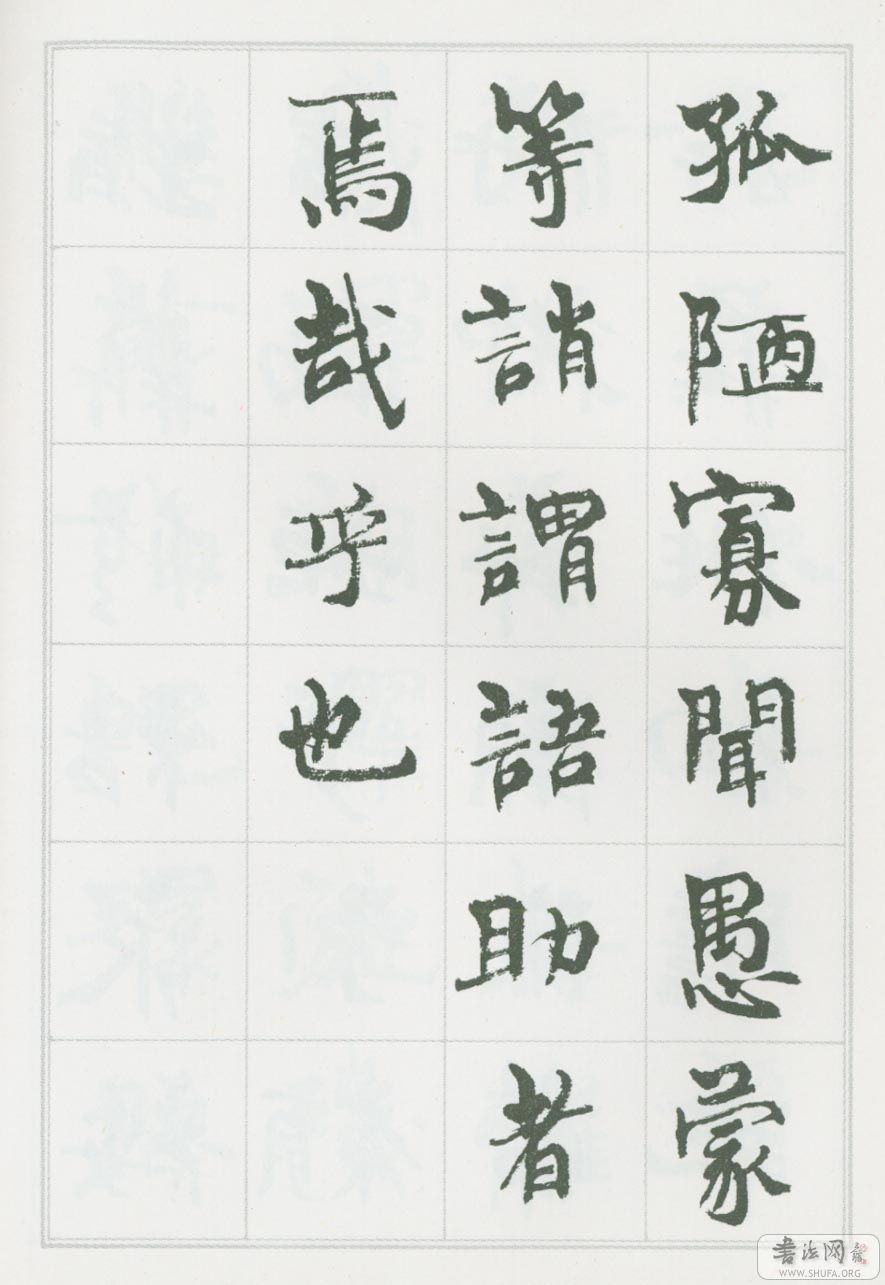 孤陋寡聞愚蒙
等誚謂語助者
焉哉乎也
書法网
WWW.SHUFA.ORG